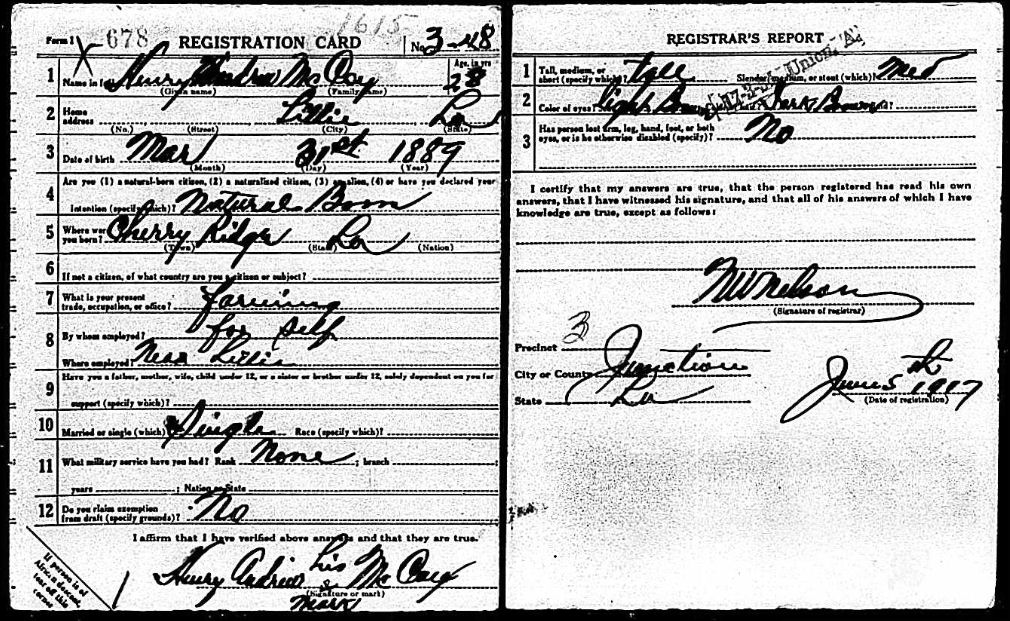 1615
Form 1 X 678 REGISTRATION CARD No. 3-48
1 Henry Andrew McCoy Age, in yrs 28
Name in full
(Given name) (Family name)
2 Home address Lillie La
(No.) (Street) (City) (State)
3 Date of birth Mar 31st 1889
(Month) (Day) (Year)
4 Are you (1) a natural-born citizen, (2) a naturalized citizen, (3) an alien, (4) or have you declared your
intention (specify which)? Natural Born
5 Where were you born? Cherry Ridge La
(Town) (State) (Nation)
6 If not a citizen, of what country are you a citizen or subject?
7 What is your present trade, occupation, or office? farming
8 By whom employed? for self
Where employed? Near Lillie
9 Have you a father, mother, wife, child under 12, or a sister or brother under 12, solely dependent on you for
support (specify which)?
10 Married or single (which)? Single Race (specify which)?
11 What military service have you had? Rank None ; branch
years ; Nation or State
12 Do you claim exemption from draft (specify grounds)? No
I affirm that I have verified above answers and that they are true.
Henry Andrew his x McCoy
(Signature or mark)
mark
If person is of
African descent,
tear off this
corner.
REGISTRAR'S REPORT
1 Tall, medium, or short (specify which)? Tall Slender, medium, or stout (which)? Med
2 Color of eyes? Light Brown Dark Brown
3 Has person lost arm, leg, hand, foot, or both
eyes, or is he otherwise disabled (specify)? No
I certify that my answers are true, that the person registered has read his own
answers, that I have witnessed his signature, and that all of his answers of which I have
knowledge are true, except as follows:
Nelson
(Signature of registrar)
Precinct 3
City or County Junction
State La
June 5th 1917
(Date of registration)